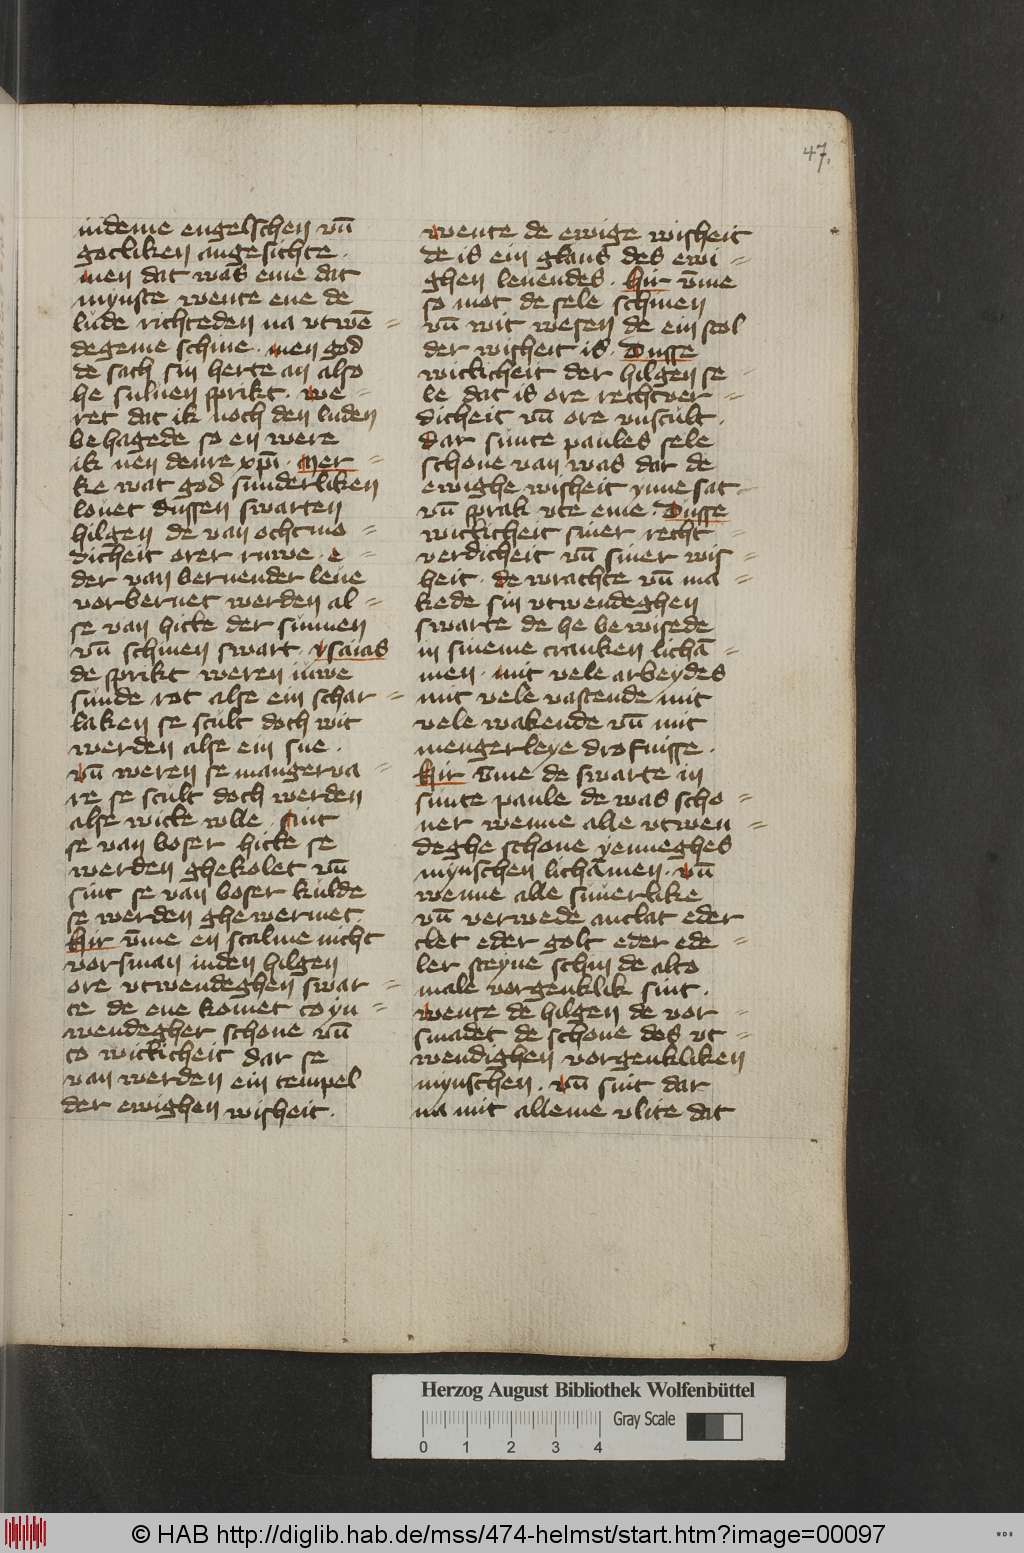 47.
indeme engelschen vn̄
gotliken angesichte ·
men dat was eme dat
mynste wente ene de
lude richteden na vtwē=
degeme schine · men god
de sach sin herte an also
he suluen sprikt · we=
ret dat ik noch den luden
behagede so en were
ik nen denre xp̄i · Mer=
ke wat god sunderliken
louet dussen swarten
hilgen de van ochtmo=
dicheit orer ruwe · e=
der van bernender leue
vorbernet werden al=
se van hitte der sunnen
vn̄ schinen swart · ysaias
de sprikt weren iuwe
sunde rot alse ein schar=
laken se scult doch wit
werden alse ein sne ·
vn̄ weren se mangerva=
re se scult doch werden
alse witte wlle · sint
se van boser hitte se
werden ghekolet vn̄
sint se van boser kulde
se werden ghewermet
Hir v̄me en scalme nicht
vorsman inden hilgen
ore vtwendeghen swar=
te de ene komet to yn=
wendegher schone vn̄
to witticheit dar se
van werden ein tempel
der ewighen wisheit ·
wente de ewige wisheit
de is ein glans des ewi=
ghen leuendes · Hir v̄me
so mot de sele schinen
vn̄ wit wesen de ein stol
der wisheit is · Dusse
witticheit der hilgen se=
le dat is ore rechtver=
dicheit vn̄ ore vnscult ·
dar sunte paules sele
schone van was dar de
ewighe wisheit ynne sat=
vn̄ sprak vte eme · Dusse
witticheit siner recht=
verdicheit vn̄ siner wis=
heit · de wrachte vn̄ ma=
kede sin vtwendeghen
swarte de he bewisede
in sineme cranken lichā=
men · mit vele arbeydes
mit vele vastende mit
vele wakende vn̄ mit
mengerleye drofnisse ·
Hir v̄me de swarte in
sunte paule de was scho=
ner wenne alle vtwen=
deghe schone yenneghes
mynschen lichāmen · vn̄
wenne alle suuerlike
vn̄ verwede antlat eder
clet eder golt eder ede=
ler steyne schin de alto
male vorgenklik sint ·
wente de hilgen de vor=
smadet de schone des vt=
wendighen vorgenkliken
mynschen · vn̄ sint dar
na mit alleme vlite dat
Herzog August Bibliothek Wolfenbüttel
0 1 2 3 4
Gray Scale
© HAB http://diglib.hab.de/mss/474-helmst/start.htm?image=00097